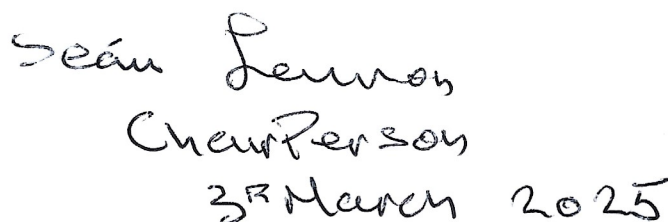 Seán Lennon
ChairPerson
3rd March 2025